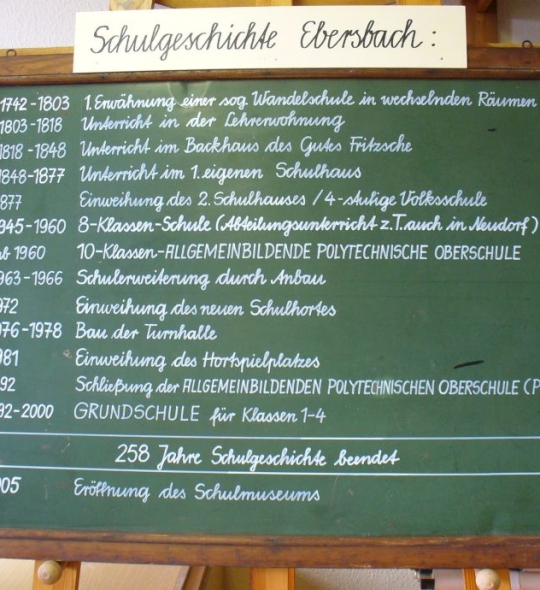 Schulgeschichte Ebersbach:
1742-1803 1. Erwähnung einer sog. Wandelschule in wechselnden Räumen
1803-1818 Unterricht in der Lehrerwohnung
1818-1848 Unterricht im Backhaus des Gutes Fritzsche
1848-1877 Unterricht im 1. eigenen Schulhaus
877 Einweihung des 2. Schulhauses / 4-stufige Volksschule
945-1960 8-Klassen-Schule (Abteilungsunterricht z.T. auch in Neudorf)
ab 1960 10-Klassen-ALLGEMEINBILDENDE POLYTECHNISCHE OBERSCHULE
963-1966 Schulerweiterung durch Anbau
972 Einweihung des neuen Schulhortes
976-1978 Bau der Turnhalle
981 Einweihung des Hortspielplatzes
92 Schließung der ALLGEMEINBILDENDEN POLYTECHNISCHEN OBERSCHULE (P
92-2000 GRUNDSCHULE für Klassen 1-4
258 Jahre Schulgeschichte beendet
005 Eröffnung des Schulmuseums